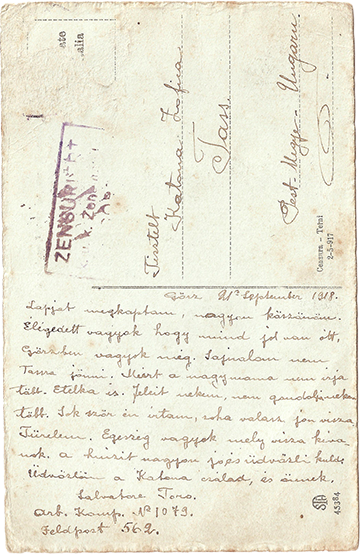 Tisztelt
Katona Zsofica
Tass
Pest-Megye - Ungarn
ZENSURIERT
Censura - Terni
2-5-917
Görz 21ᴰ September 1918.
Lapjat megkaptam, nagyon köszönöm.
Elégedett vagyok hogy mind jol van ott,
Görzben vagyok még. Sajnalom nem
Tassa jönni. Miért a nagymama nem irja
többt. Etelka is. Jeleit nekem, nem gondoljnekem
többt. Sok ször én irtam, soha valasz jön vissza
Türelem. Egeszség vagyok mely vissza kiva
nok. a huszit nagyon jo és üdvözli kulds
Üdvöztön a Katona csalad, és önnek.
Salvatore Toro.
Arb. Komp. Nº 1079.
Feldpost 562.
45384